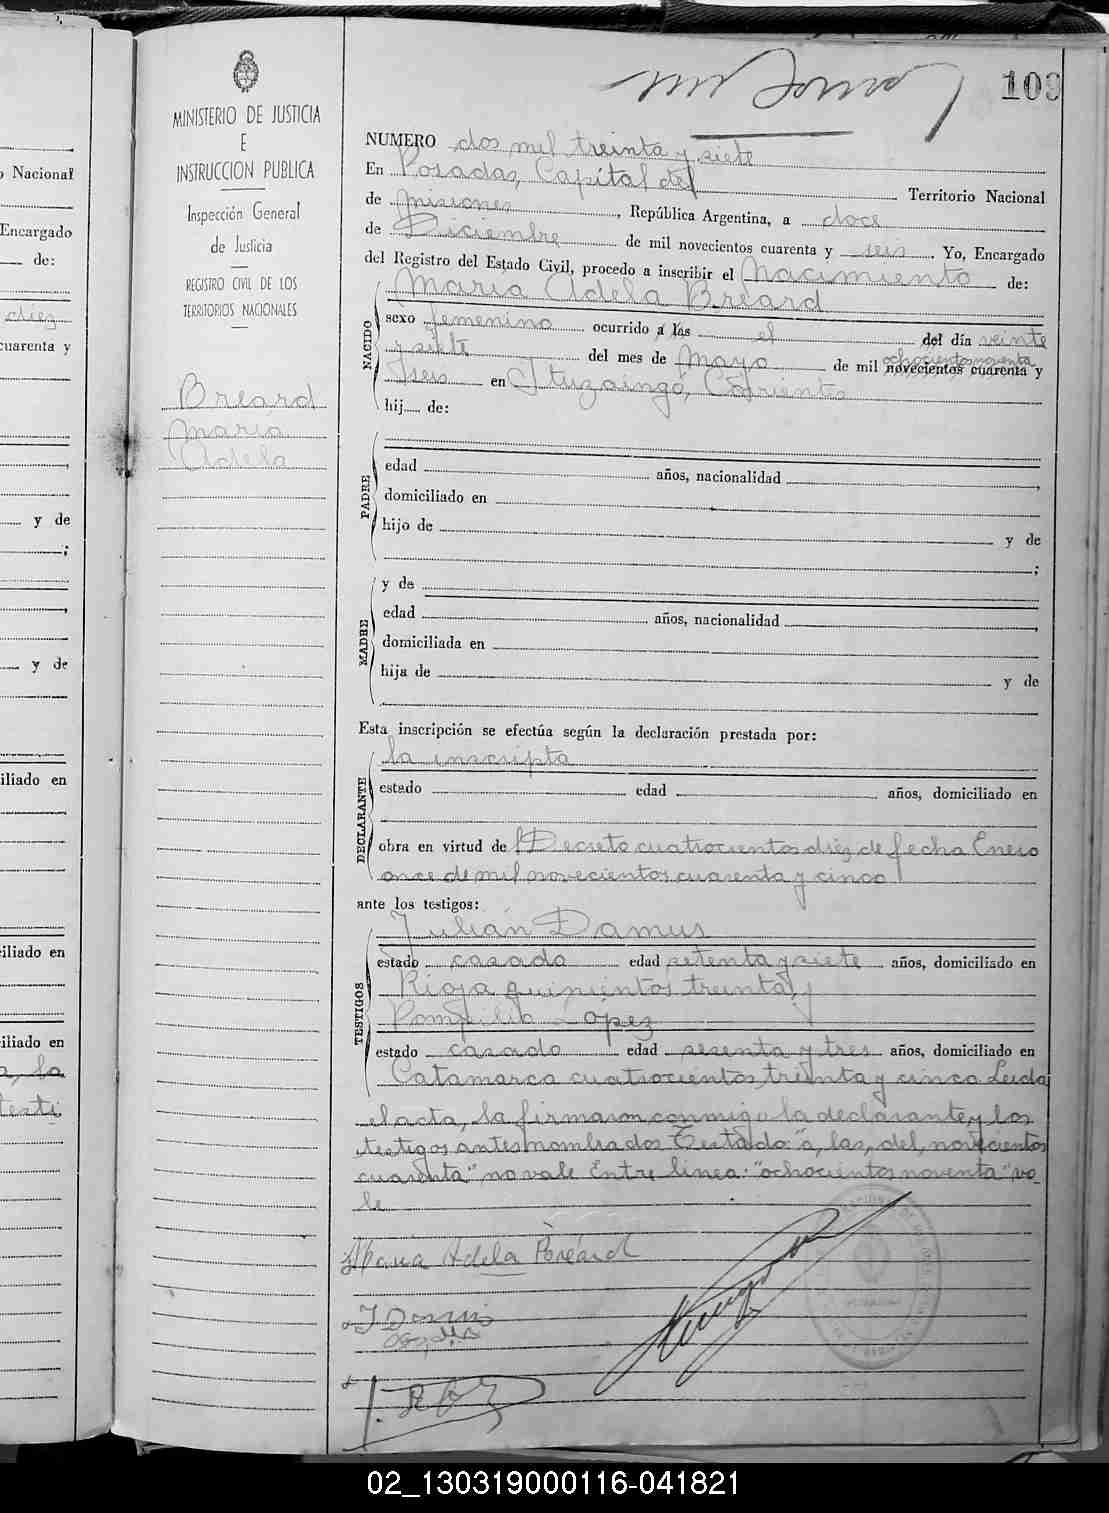 103
MINISTERIO DE JUSTICIA
E
INSTRUCCION PUBLICA
Inspección General
de Justicia
REGISTRO CIVIL DE LOS
TERRITORIOS NACIONALES
Breard
Maria
Adela
Nacional
Encargado
de:
diez
cuarenta y
y de
;
y de
iliado en
iliado en
iliado en
a, la
testi
NUMERO dos mil treinta y siete
En Posadas, Capital del Territorio Nacional
de Misiones, República Argentina, a doce
de Diciembre de mil novecientos cuarenta y seis. Yo, Encargado
del Registro del Estado Civil, procedo a inscribir el Nacimiento de:
Maria Adela Breard
NACIDO
sexo femenino ocurrido a las el del día veinte
y siete del mes de Mayo de mil novecientos cuarenta y
ochocientos noventa
seis en Ituzaingó, Corrientes
hij.... de:
PADRE
edad años, nacionalidad
domiciliado en
hijo de y de
;
MADRE
y de
edad años, nacionalidad
domiciliada en
hija de y de
Esta inscripción se efectúa según la declaración prestada por:
la inscripta
DECLARANTE
estado edad años, domiciliado en
obra en virtud de Decreto cuatrocientos diez de fecha Enero
once de mil novecientos cuarenta y cinco
ante los testigos:
Julián Damus
TESTIGOS
estado casado edad setenta y siete años, domiciliado en
Rioja quinientos treinta y
Pompilio López
estado casado edad sesenta y tres años, domiciliado en
Catamarca cuatrocientos treinta y cinco Leida
el acta, la firmaron conmigo la declarante y los
testigos antes nombrados Testado: "a, las, del, novecientos
cuarenta" no vale Entre linea: "ochocientos noventa" va-
le
Maria Adela Bréard
J Damus
02_130319000116-041821